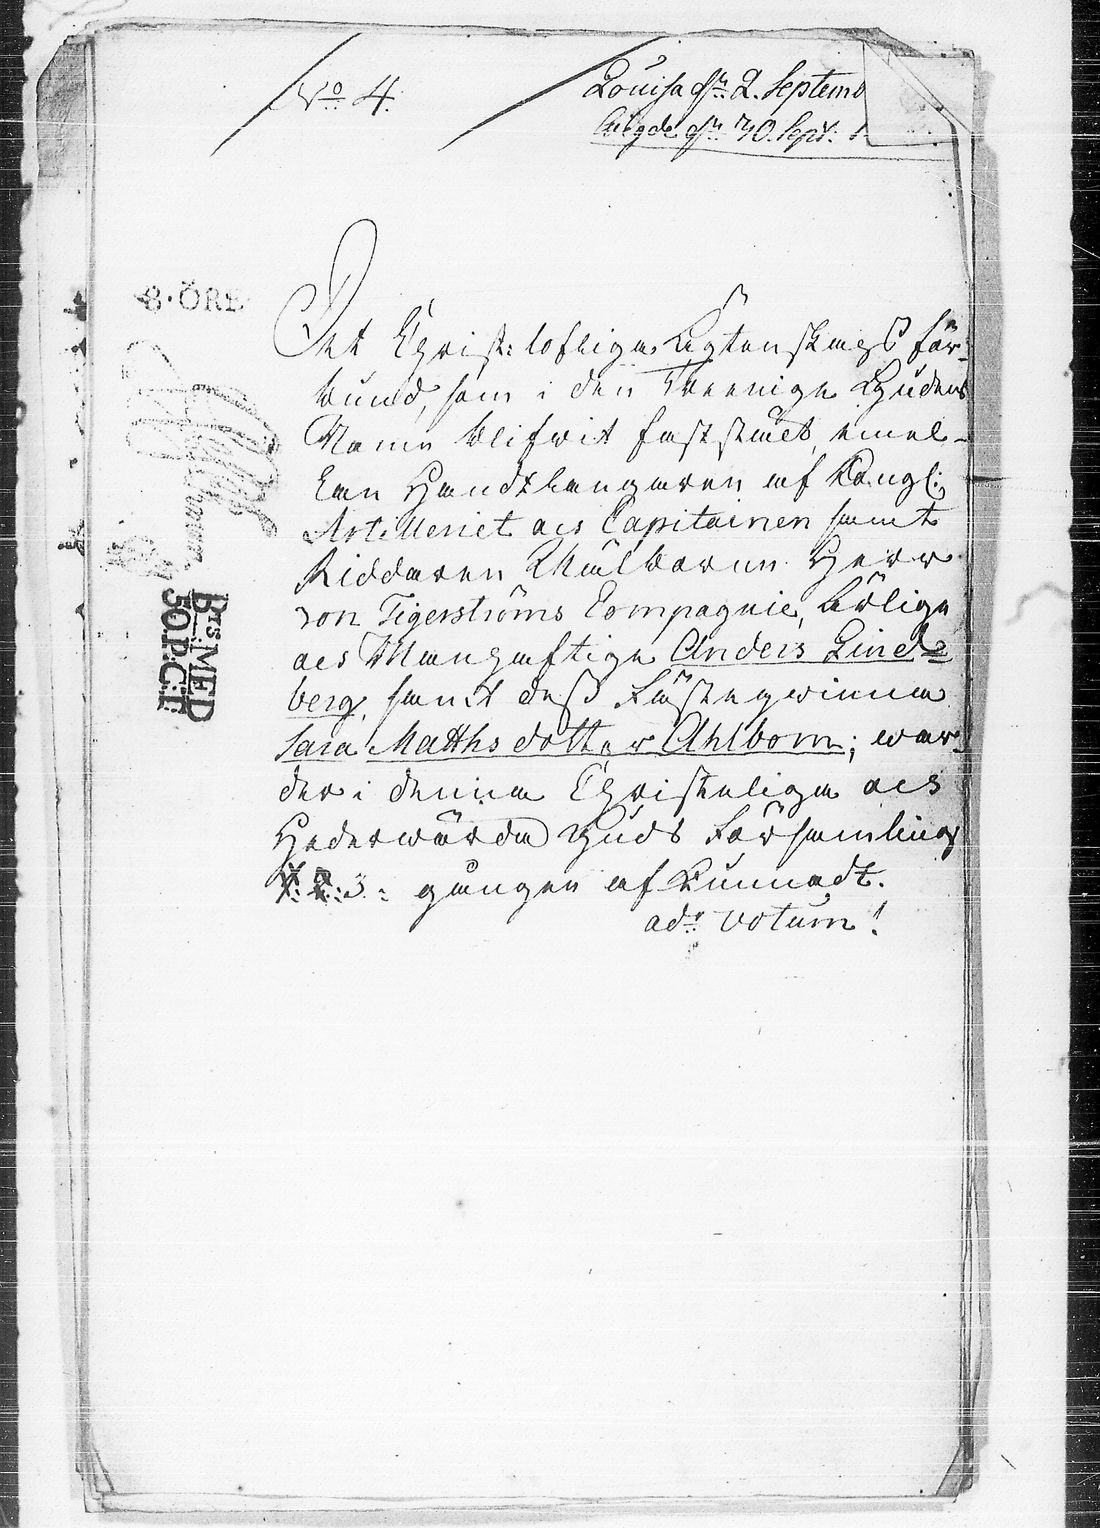 No 4.
Louisa d. 2. Septemb
d. 30. Sept:
8·ÖRE
Det Christ: lofliga Ägtenskaps för-
bund, som i den Treeniga Gudens
Namn blifwit faststäldt, emel-
lan Handtlangaren af Kongl:
Artilleriet och Capitainen samt
Riddaren Wälborne Herr
von Tigerströms Compagnie, ärlige
och Manhaftige Anders Lind-
berg, samt dess Fästeqwinna
Sara Matths dotter Ahlbom; war-
der i denna Christeliga och
Hederwärda Guds Församling
1: 2: 3: gången aflunnadt.
ad votum!
BTS MED
50.P:C:T: